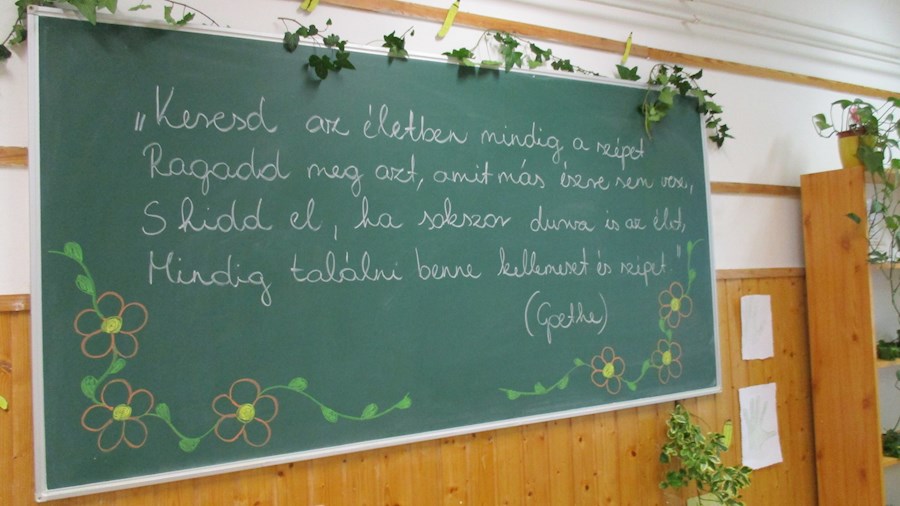 „Keresd az életben mindig a szépet
Ragadd meg azt, amit más észre sem vesz,
S hidd el, ha sokszor durva is az élet,
Mindig találni benne kellemeset és szépet."
(Goethe)